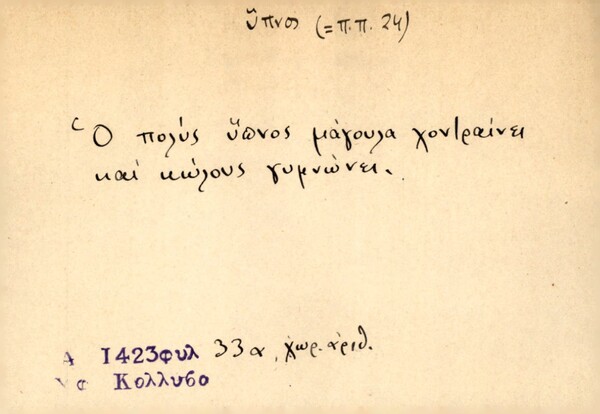 ὕπνος (=π.π. 24)
Ὁ πολύς ὕπνος μάγουλα χοντραίνει
καί κώλους γυμνώνει.
Α 1423φυλ 33α, χωρ. ἀριθ.
Κολλυσο